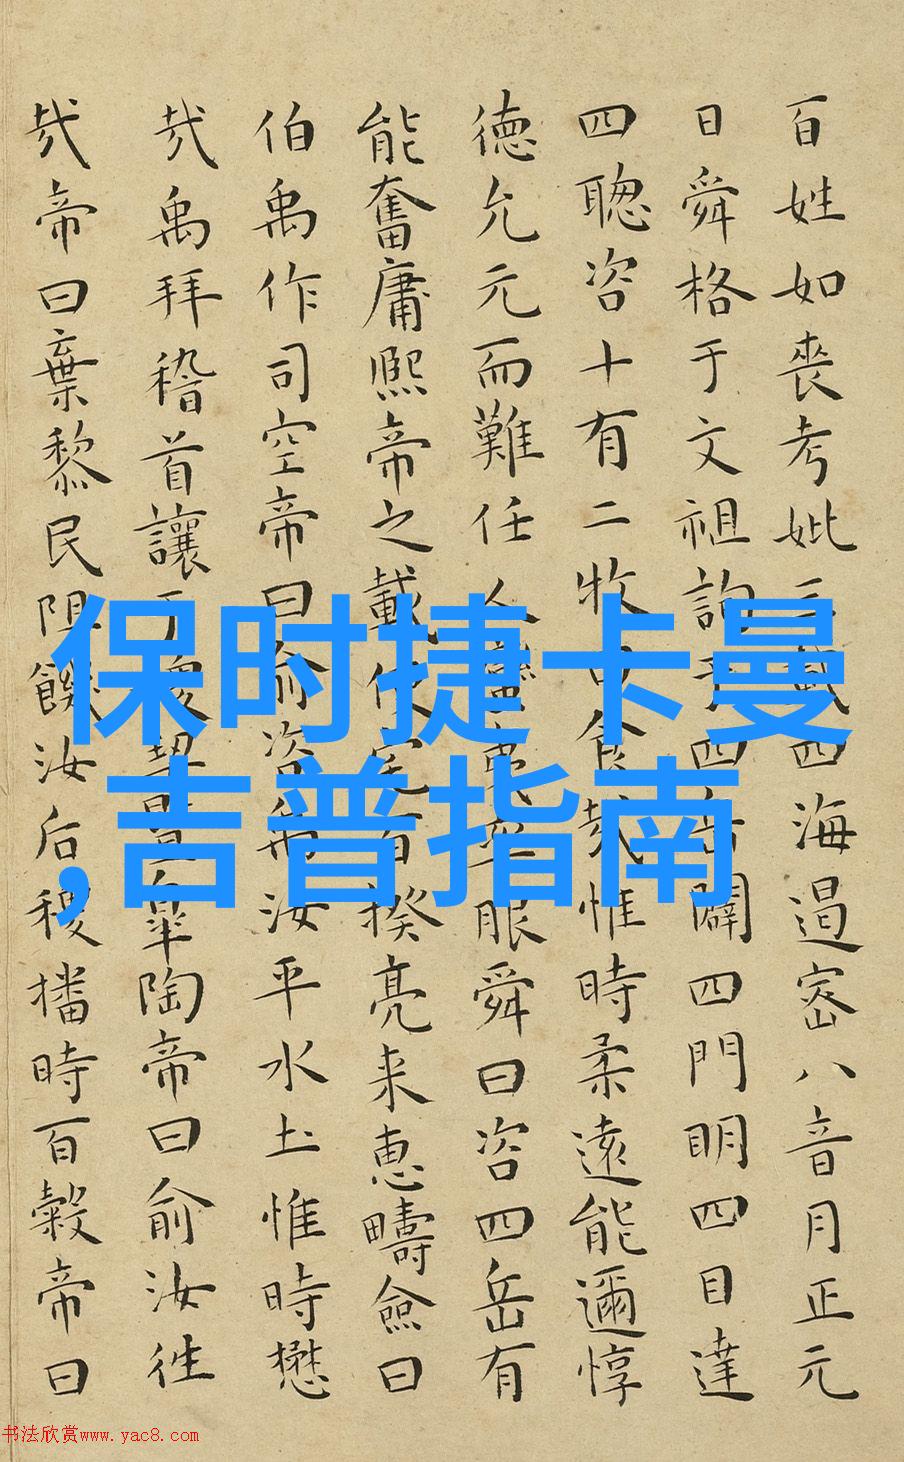 百姓如喪考妣三載四海遏密八音月正元
日舜格于文祖詢于四岳闢四門明四目達
四聰咨十有二牧曰食哉惟時柔遠能邇惇
德允元而難任人蠻夷率服舜曰咨四岳有
能奮庸熙帝之載使宅百揆亮采惠疇僉曰
伯禹作司空帝曰俞咨禹汝平水土惟時懋
哉禹拜稽首讓于稷契暨皋陶帝曰俞汝往
哉帝曰棄黎民阻饑汝后稷播時百穀帝曰
保时捷卡曼
,吉普指南
书法欣赏www.yac8.com